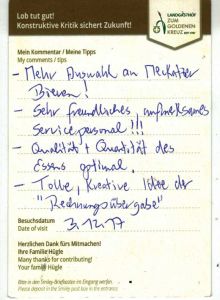 Lob tut gut!
Konstruktive Kritik sichert Zukunft!
LANDGASTHOF
ZUM
GOLDENEN
KREUZ
Mein Kommentar / Meine Tipps
My comments / tips
- Mehr Auswahl an Meckatzer
Bieren!
- Sehr freundliches, aufmerksames
Servicepersonal!!!
- Qualität + Quantität des
Essens optimal.
- Tolle, kreative Idee der
"Rechnungsübergabe"
Besuchsdatum
Date of visit
3.12.17
Herzlichen Dank fürs Mitmachen!
Ihre Familie Hügle
Many thanks for contributing!
Your family Hügle
Bitte in den Smiley-Briefkasten im Eingang werfen.
Please deposit in the Smiley post box in the entrance